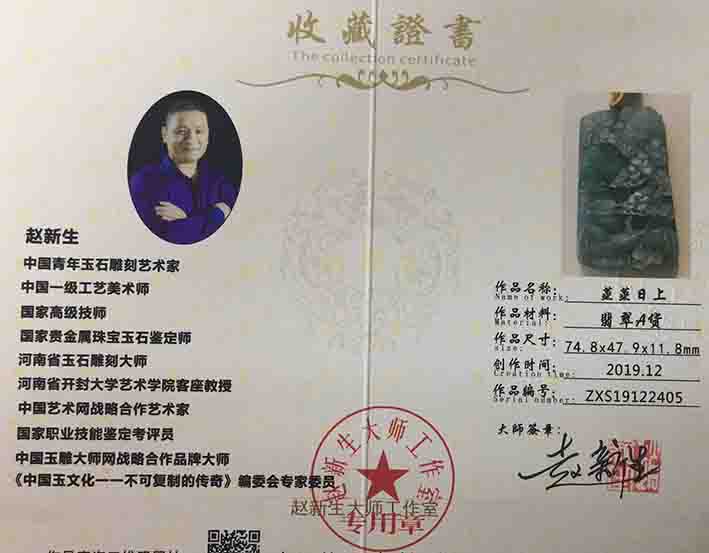 收藏證書
The collection certificate
赵新生
中国青年玉石雕刻艺术家
中国一级工艺美术师
国家高级技师
国家贵金属珠宝玉石鉴定师
河南省玉石雕刻大师
河南省开封大学艺术学院客座教授
中国艺术网战略合作艺术家
国家职业技能鉴定考评员
中国玉雕大师网战略合作品牌大师
《中国玉文化一一不可复制的传奇》编委会专家委员
作品名称： 蒸蒸日上
Name of work:
作品材料： 翡翠A货
Material:
作品尺寸： 74.8x47.9x11.8mm
size:
创作时间： 2019.12
Creation time:
作品编号： ZXS19122405
Serial number:
大师签章：
赵新生
赵新生大师工作室
赵新生大师工作室
专用章